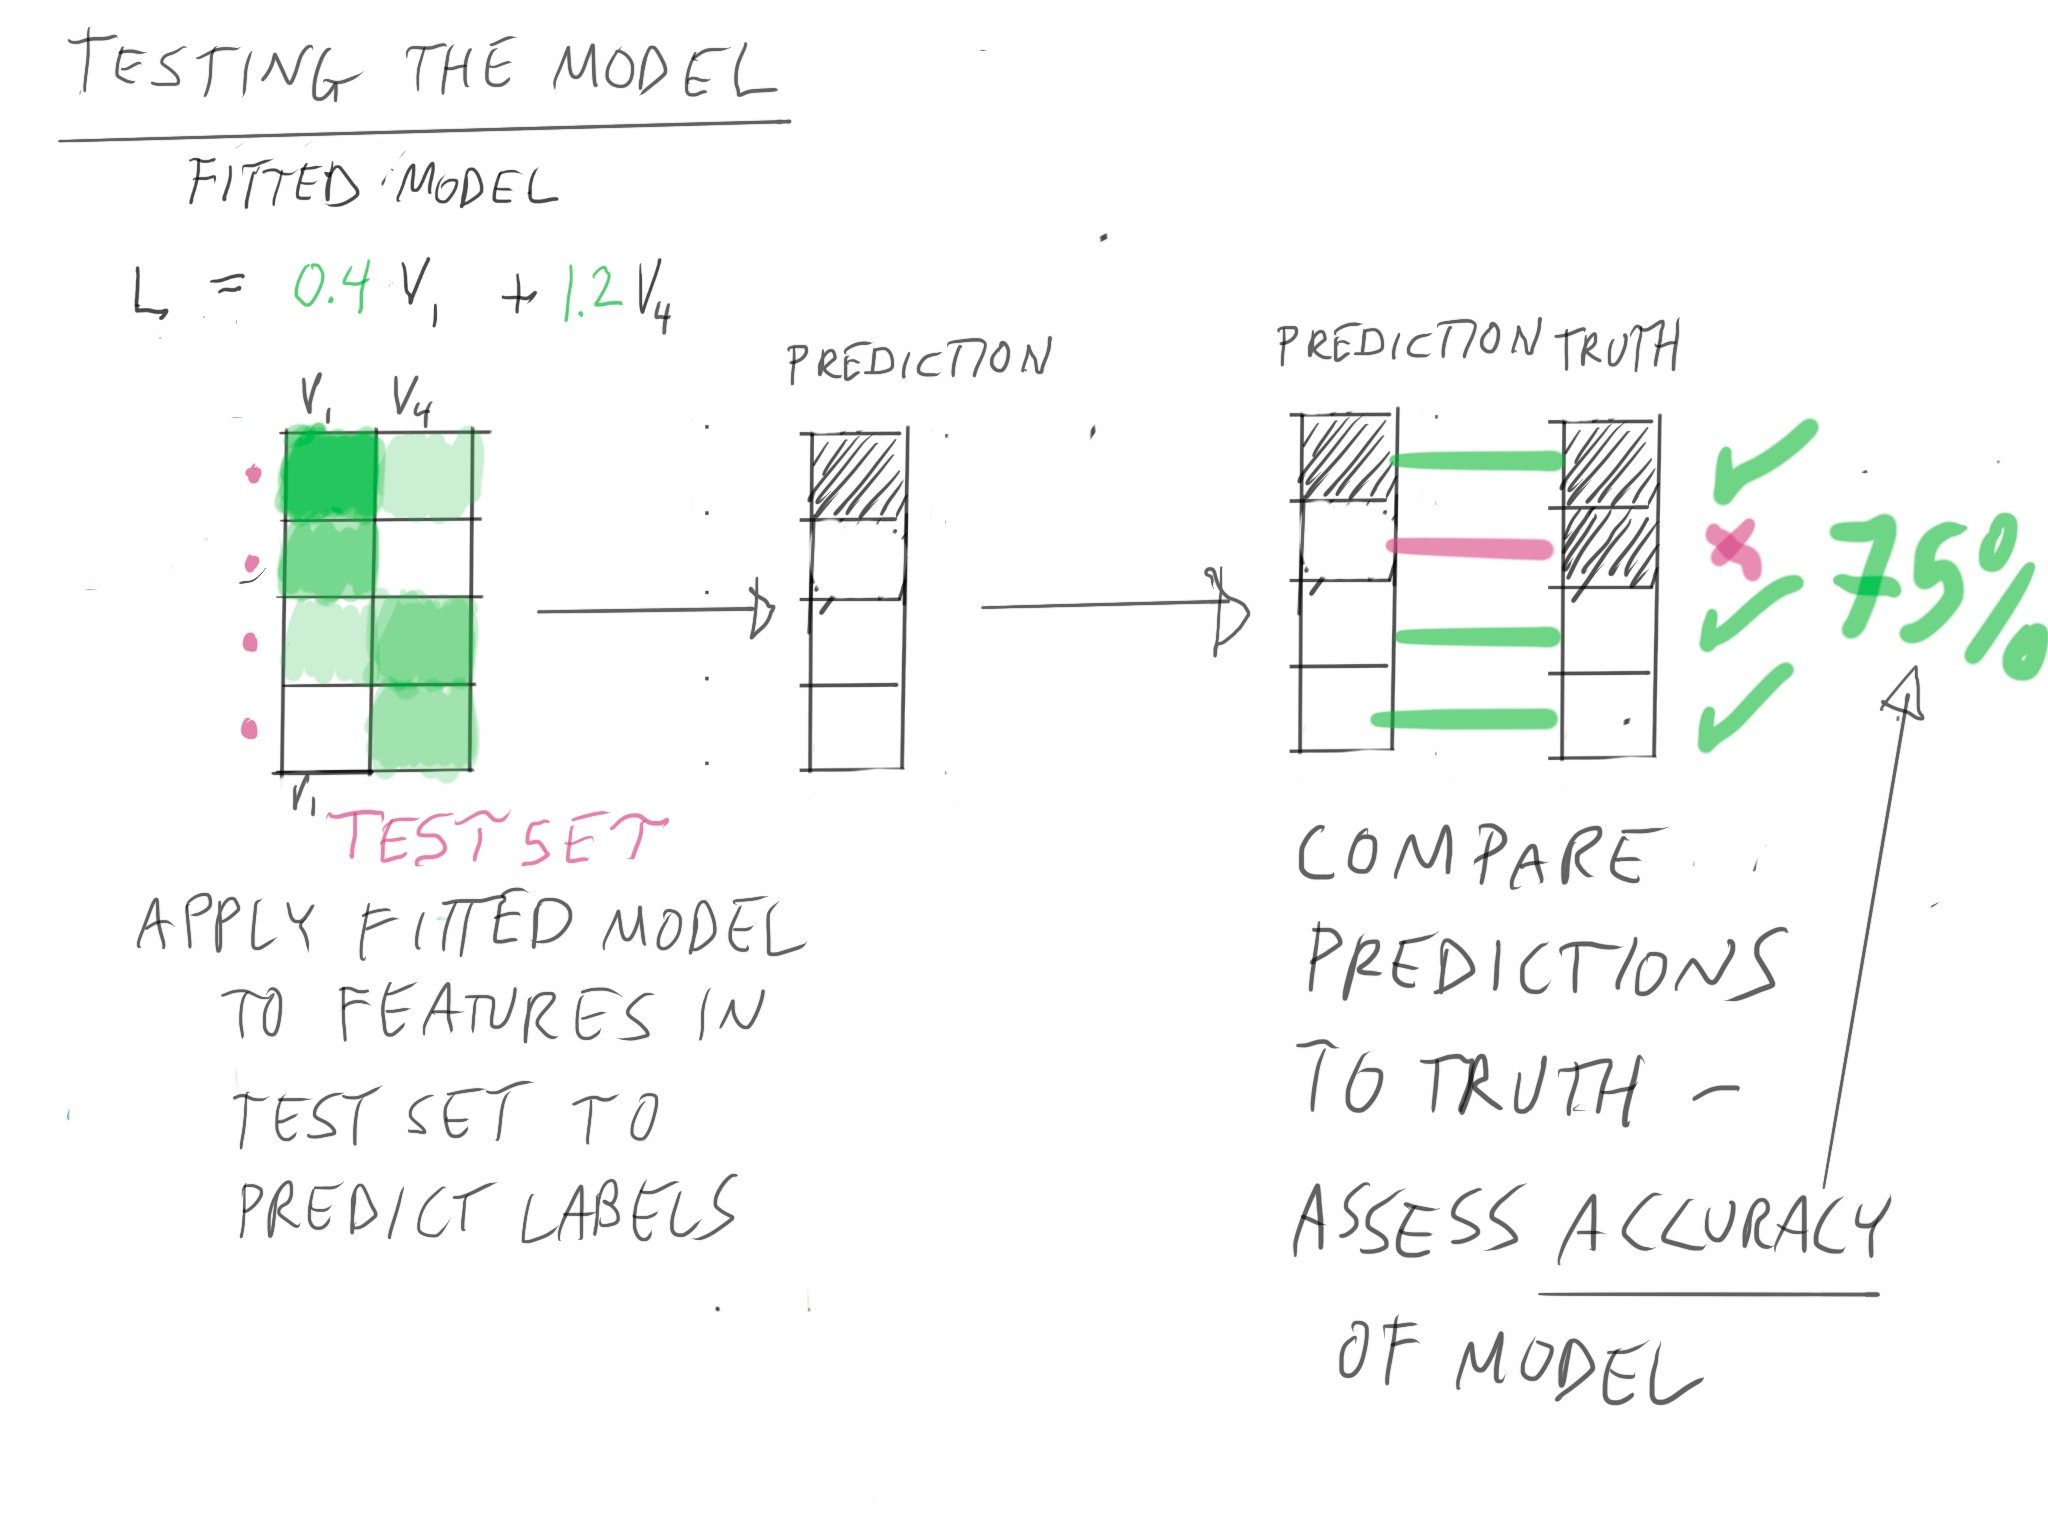 TESTING THE MODEL
FITTED MODEL
L = 0.4 V1 + 1.2 V4
V1 V4
V1
TEST SET
APPLY FITTED MODEL
TO FEATURES IN
TEST SET TO
PREDICT LABELS
PREDICTION
PREDICTION TRUTH
75%
COMPARE
PREDICTIONS
TO TRUTH –
ASSESS ACCURACY
OF MODEL